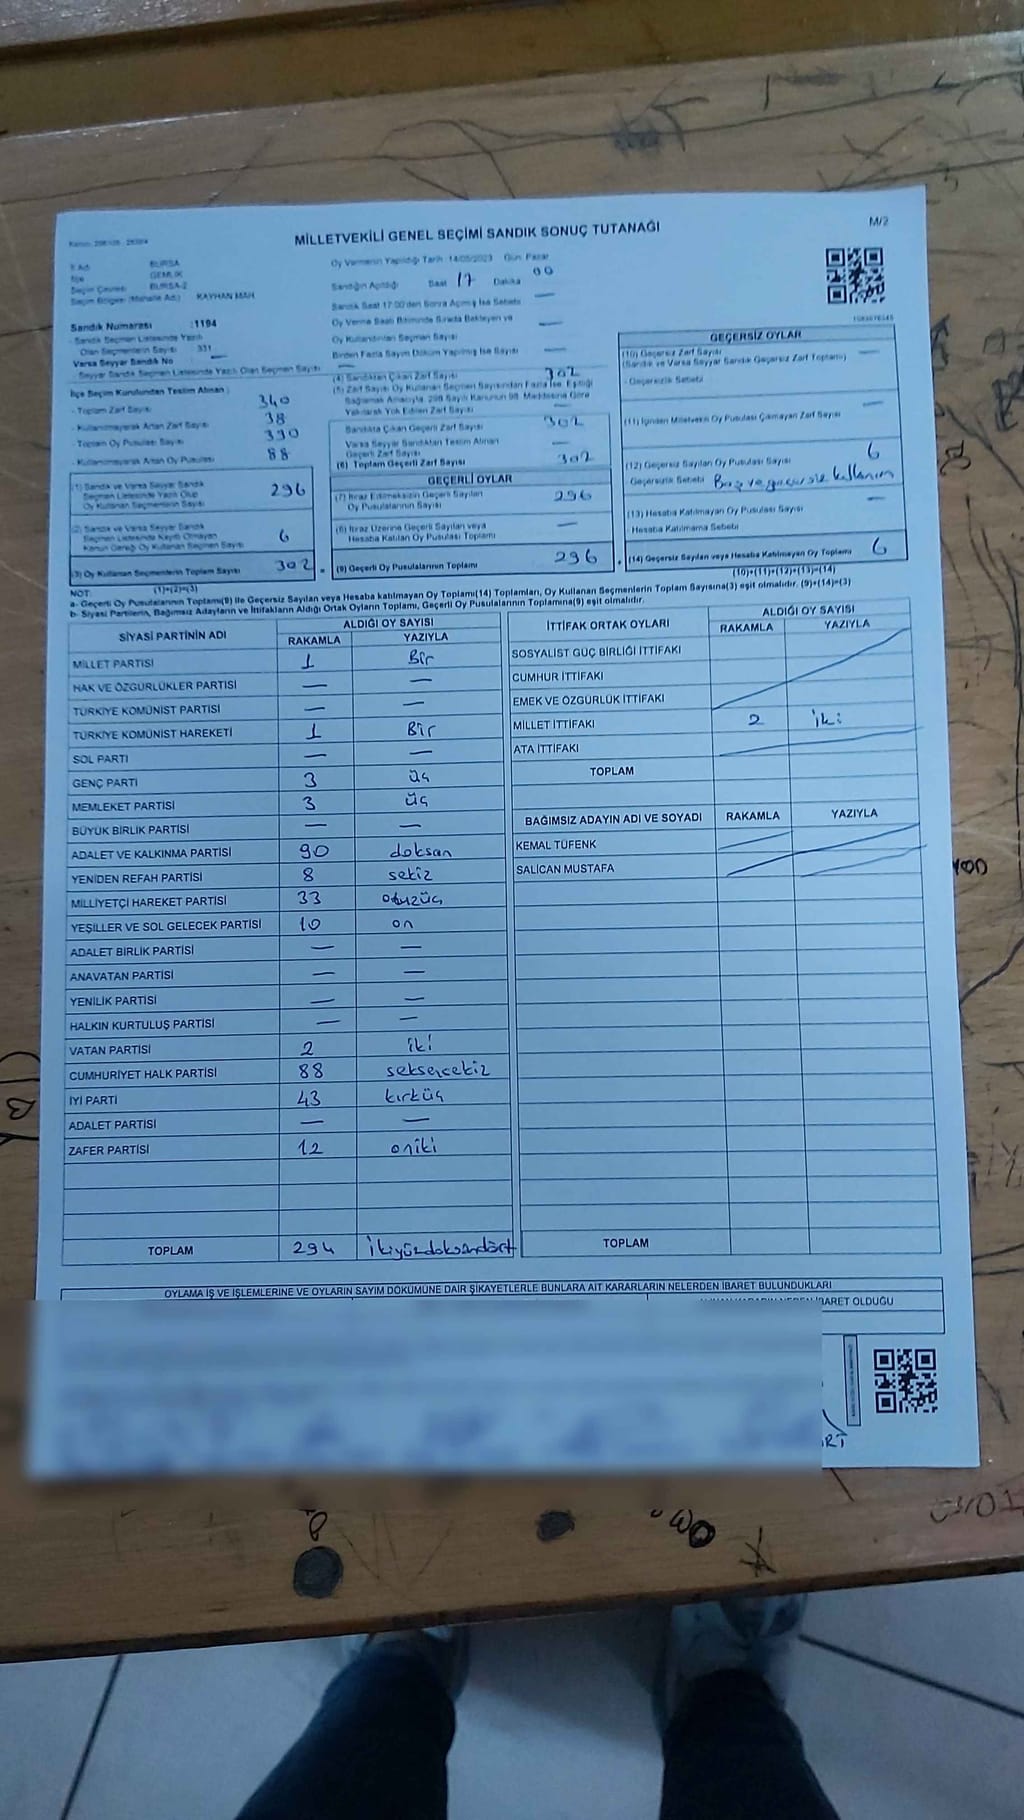 MİLLETVEKİLİ GENEL SEÇİMİ SANDIK SONUÇ TUTANAĞI
M/2
İl Adı BURSA
İlçe GEMLİK
Seçim Çevresi BURSA-2
Seçim Bölgesi (Mahalle Adı) KAYHAN MAH
Sandık Numarası :1194
- Sandık Seçmen Listesinde Yazılı
Olan Seçmenlerin Sayısı 331
Varsa Seyyar Sandık No —
- Seyyar Sandık Seçmen Listesinde Yazılı Olan Seçmen Sayısı —
İlçe Seçim Kurulundan Teslim Alınan :
- Toplam Zarf Sayısı 340
- Kullanılmayarak Artan Zarf Sayısı 38
- Toplam Oy Pusulası Sayısı 390
- Kullanılmayarak Artan Oy Pusulası 88
(1) Sandık ve Varsa Seyyar Sandık
Seçmen Listesinde Yazılı Olup
Oy Kullanan Seçmenlerin Sayısı 296
(2) Sandık ve Varsa Seyyar Sandık
Seçmen Listesinde Kayıtlı Olmayan
Kanun Gereği Oy Kullanan Seçmen Sayısı 6
(3) Oy Kullanan Seçmenlerin Toplam Sayısı 302 =
(1)+(2)=(3)
Oy Vermenin Yapıldığı Tarih : 14/05/2023 Gün: Pazar
Sandığın Açıldığı Saat 17 Dakika 00
Sandık Saat 17:00'den Sonra Açılmış İse Sebebi —
Oy Verme Saati Bitiminde Sırada Bekleyen ve
Oy Kullandırılan Seçmen Sayısı —
Birden Fazla Sayım Döküm Yapılmış İse Sayısı —
(4) Sandıktan Çıkan Zarf Sayısı 302
(5) Zarf Sayısı Oy Kullanan Seçmen Sayısından Fazla İse, Eşitliği
Sağlamak Amacıyla, 298 Sayılı Kanunun 98. Maddesine Göre
Yakılarak Yok Edilen Zarf Sayısı —
Sandıkta Çıkan Geçerli Zarf Sayısı 302
Varsa Seyyar Sandıktan Teslim Alınan
Geçerli Zarf Sayısı —
(6) Toplam Geçerli Zarf Sayısı 302
GEÇERLİ OYLAR
(7) İtiraz Edilmeksizin Geçerli Sayılan
Oy Pusulalarının Sayısı 296
(8) İtiraz Üzerine Geçerli Sayılan veya
Hesaba Katılan Oy Pusulası Toplamı —
(9) Geçerli Oy Pusulalarının Toplamı 296 +
GEÇERSİZ OYLAR
(10) Geçersiz Zarf Sayısı —
(Sandık ve Varsa Seyyar Sandık Geçersiz Zarf Toplamı)
- Geçersizlik Sebebi
(11) İçinden Milletvekili Oy Pusulası Çıkmayan Zarf Sayısı —
(12) Geçersiz Sayılan Oy Pusulası Sayısı 6
Geçersizlik Sebebi Boş ve geçersiz kullanım
(13) Hesaba Katılmayan Oy Pusulası Sayısı —
- Hesaba Katılmama Sebebi
(14) Geçersiz Sayılan veya Hesaba Katılmayan Oy Toplamı 6
(10)+(11)+(12)+(13)=(14)
NOT:
a- Geçerli Oy Pusulalarının Toplamı(9) ile Geçersiz Sayılan veya Hesaba Katılmayan Oy Toplamı(14) Toplamları, Oy Kullanan Seçmenlerin Toplam Sayısına(3) eşit olmalıdır. (9)+(14)=(3)
b- Siyasi Partilerin, Bağımsız Adayların ve İttifakların Aldığı Ortak Oyların Toplamı, Geçerli Oy Pusulalarının Toplamına(9) eşit olmalıdır.
SİYASİ PARTİNİN ADI ALDIĞI OY SAYISI
RAKAMLA YAZIYLA
MİLLET PARTİSİ 1 Bir
HAK VE ÖZGÜRLÜKLER PARTİSİ — —
TÜRKİYE KOMÜNİST PARTİSİ — —
TÜRKİYE KOMÜNİST HAREKETİ 1 Bir
SOL PARTİ — —
GENÇ PARTİ 3 üç
MEMLEKET PARTİSİ 3 üç
BÜYÜK BİRLİK PARTİSİ — —
ADALET VE KALKINMA PARTİSİ 90 doksan
YENİDEN REFAH PARTİSİ 8 sekiz
MİLLİYETÇİ HAREKET PARTİSİ 33 otuzüç
YEŞİLLER VE SOL GELECEK PARTİSİ 10 on
ADALET BİRLİK PARTİSİ — —
ANAVATAN PARTİSİ — —
YENİLİK PARTİSİ — —
HALKIN KURTULUŞ PARTİSİ — —
VATAN PARTİSİ 2 iki
CUMHURİYET HALK PARTİSİ 88 seksensekiz
İYİ PARTİ 43 kırküç
ADALET PARTİSİ — —
ZAFER PARTİSİ 12 oniki
TOPLAM 294 ikiyüzdoksandört
İTTİFAK ORTAK OYLARI ALDIĞI OY SAYISI
RAKAMLA YAZIYLA
SOSYALİST GÜÇ BİRLİĞİ İTTİFAKI
CUMHUR İTTİFAKI
EMEK VE ÖZGÜRLÜK İTTİFAKI
MİLLET İTTİFAKI 2 iki
ATA İTTİFAKI
TOPLAM
BAĞIMSIZ ADAYIN ADI VE SOYADI RAKAMLA YAZIYLA
KEMAL TÜFENK
SALİCAN MUSTAFA
TOPLAM
OYLAMA İŞ VE İŞLEMLERİNE VE OYLARIN SAYIM DÖKÜMÜNE DAİR ŞİKAYETLERLE BUNLARA AİT KARARLARIN NELERDEN İBARET BULUNDUKLARI
İBARET OLDUĞU